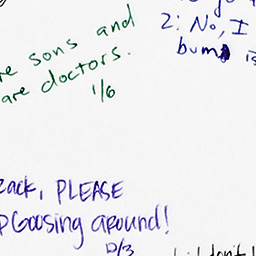 2: No, I
bump is
re sons and
are doctors.
1/6
zack, PLEASE
Goosing around!
12/3
I don't